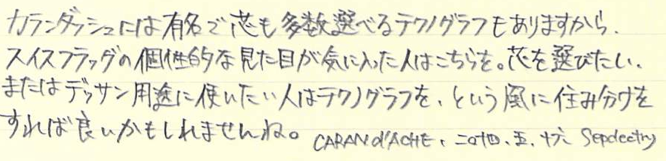 カランダッシュには有名で芯も多数選べるテクノグラフもありますから、
スイスフラッグの個性的な見た目が気に入った人はこちらを。芯を選びたい、
またはデッサン用途に使いたい人はテクノグラフを、という風に住み分けを
すれば良いかもしれませんね。 CARAN d'ACHE、二〇十四、五、十六